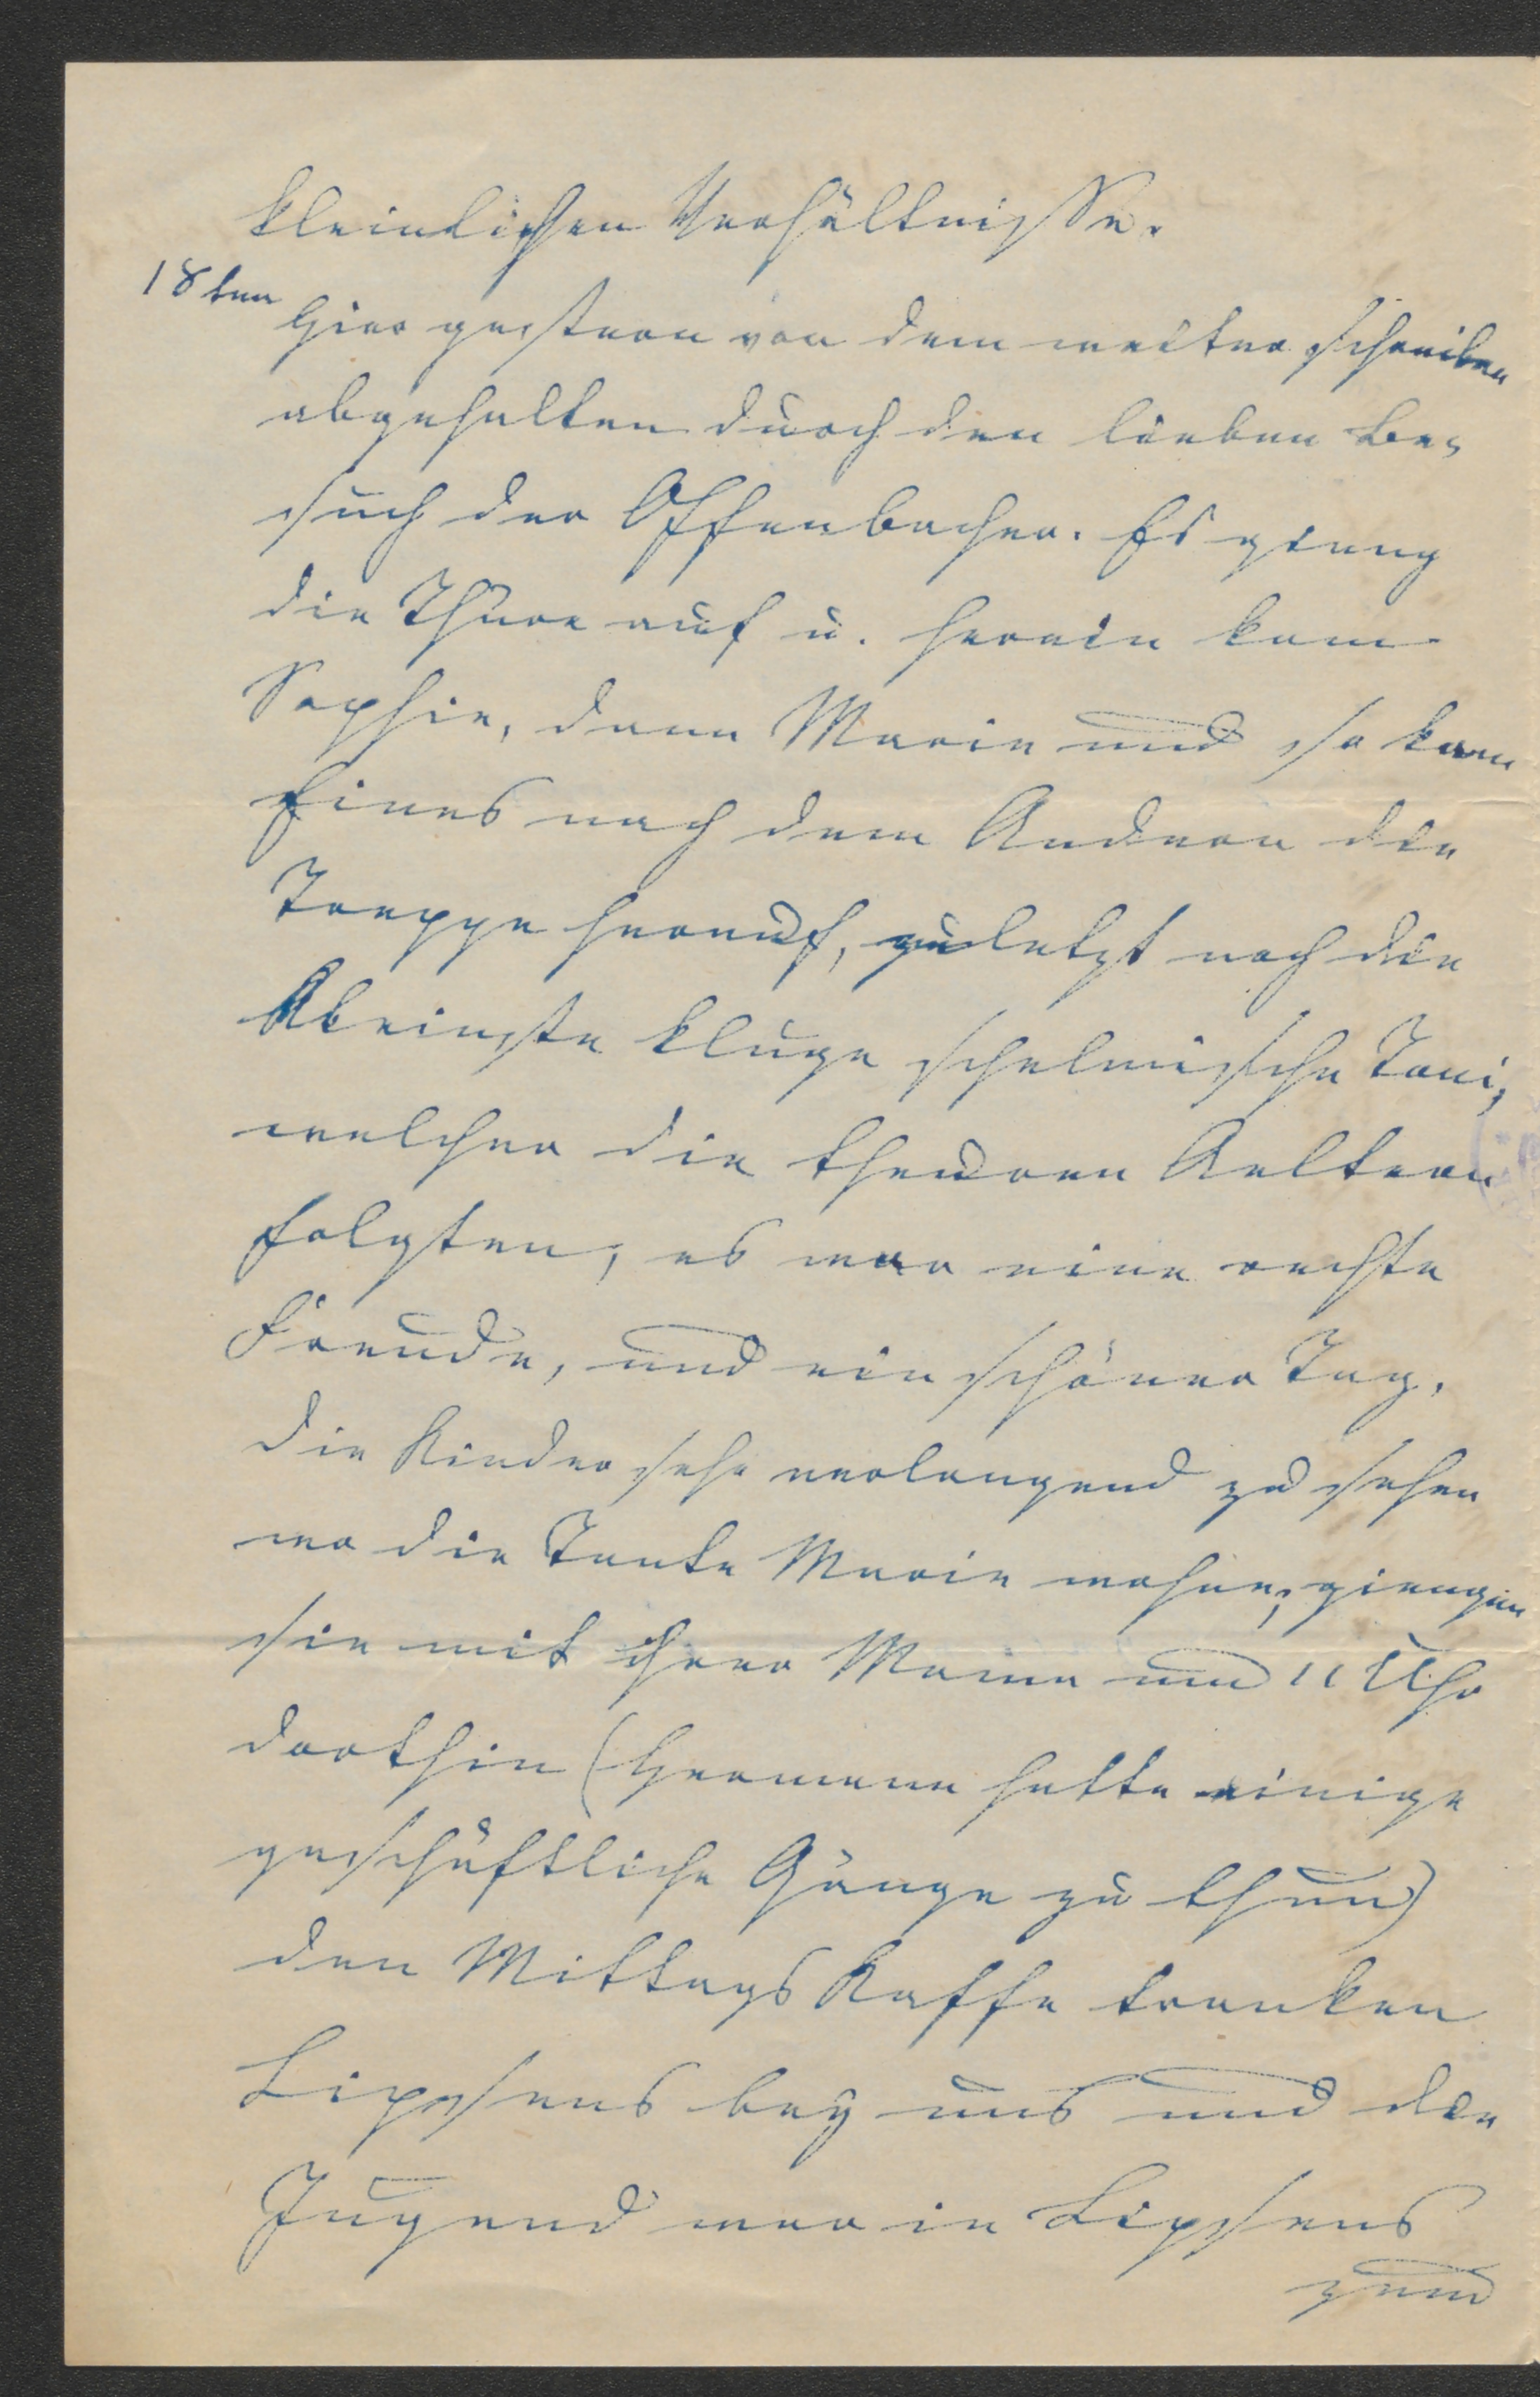 kleinlichen Verhältnisse.
18ten
Hier gestern von dem weiter schreiben
abgehalten durch den lieben Be-
such der Offenbacher. Es gieng
die Thüre auf u. herein kam
Sophie, dann Marie und so kam
Eines nach dem Andern die
Treppe herauf, zuletzt noch die
Kleinste kluge schelmische Toni,
welcher die theuren Aeltern
folgten, es war eine rechte
Freude, und ein schöner Tag.
Die Kinder sehr verlangend zu sehen
wo die Tante Marie wohne, giengen
sie mit ihrer Mama um 11 Uhr
dorthin (Hermann hatte einige
geschäftliche Gänge zu thun)
den Mittags Kaffe tranken
Lipsens bey uns und die
Jugend war in Lipsens
zum